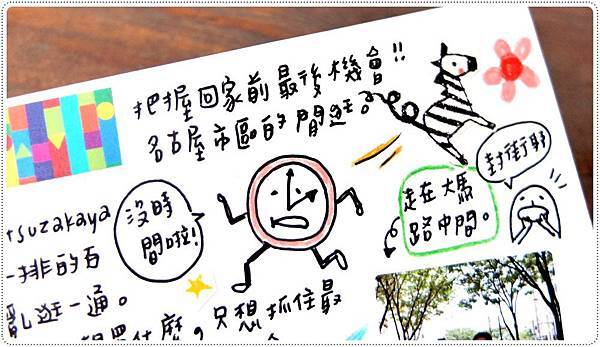 把握回家前最後機會!!
名古屋市區的閒逛。
沒時
間啦!
走在大馬
路中間。
封街耶
tsuzakaya
一排的百
亂逛一通。
什麼，只想抓住最